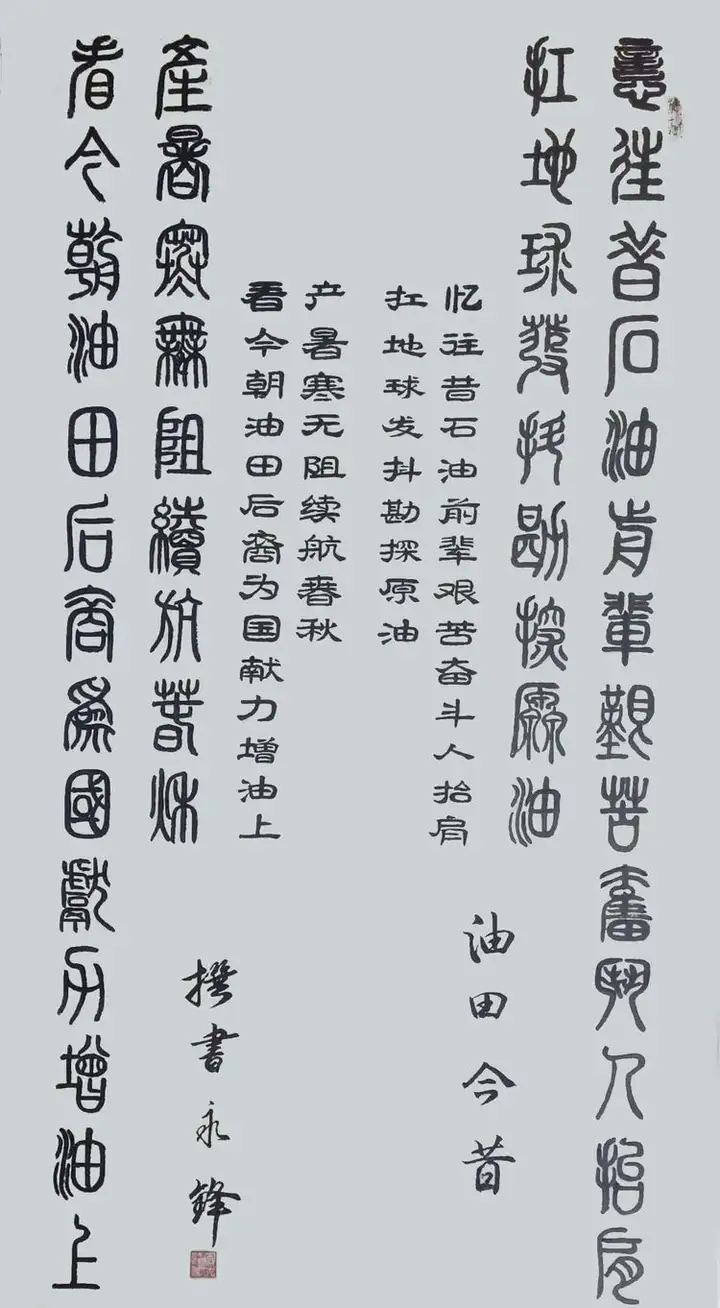 憶往昔石油前輩艱苦奮鬥人抬肩
扛地球發抖勘探原油
忆往昔石油前辈艰苦奋斗人抬肩
扛地球发抖勘探原油
油田今昔
看今朝油田后裔為國獻力增油上
產暑寒無阻續航春秋
看今朝油田后裔为国献力增油上
产暑寒无阻续航春秋
撰書永鋒